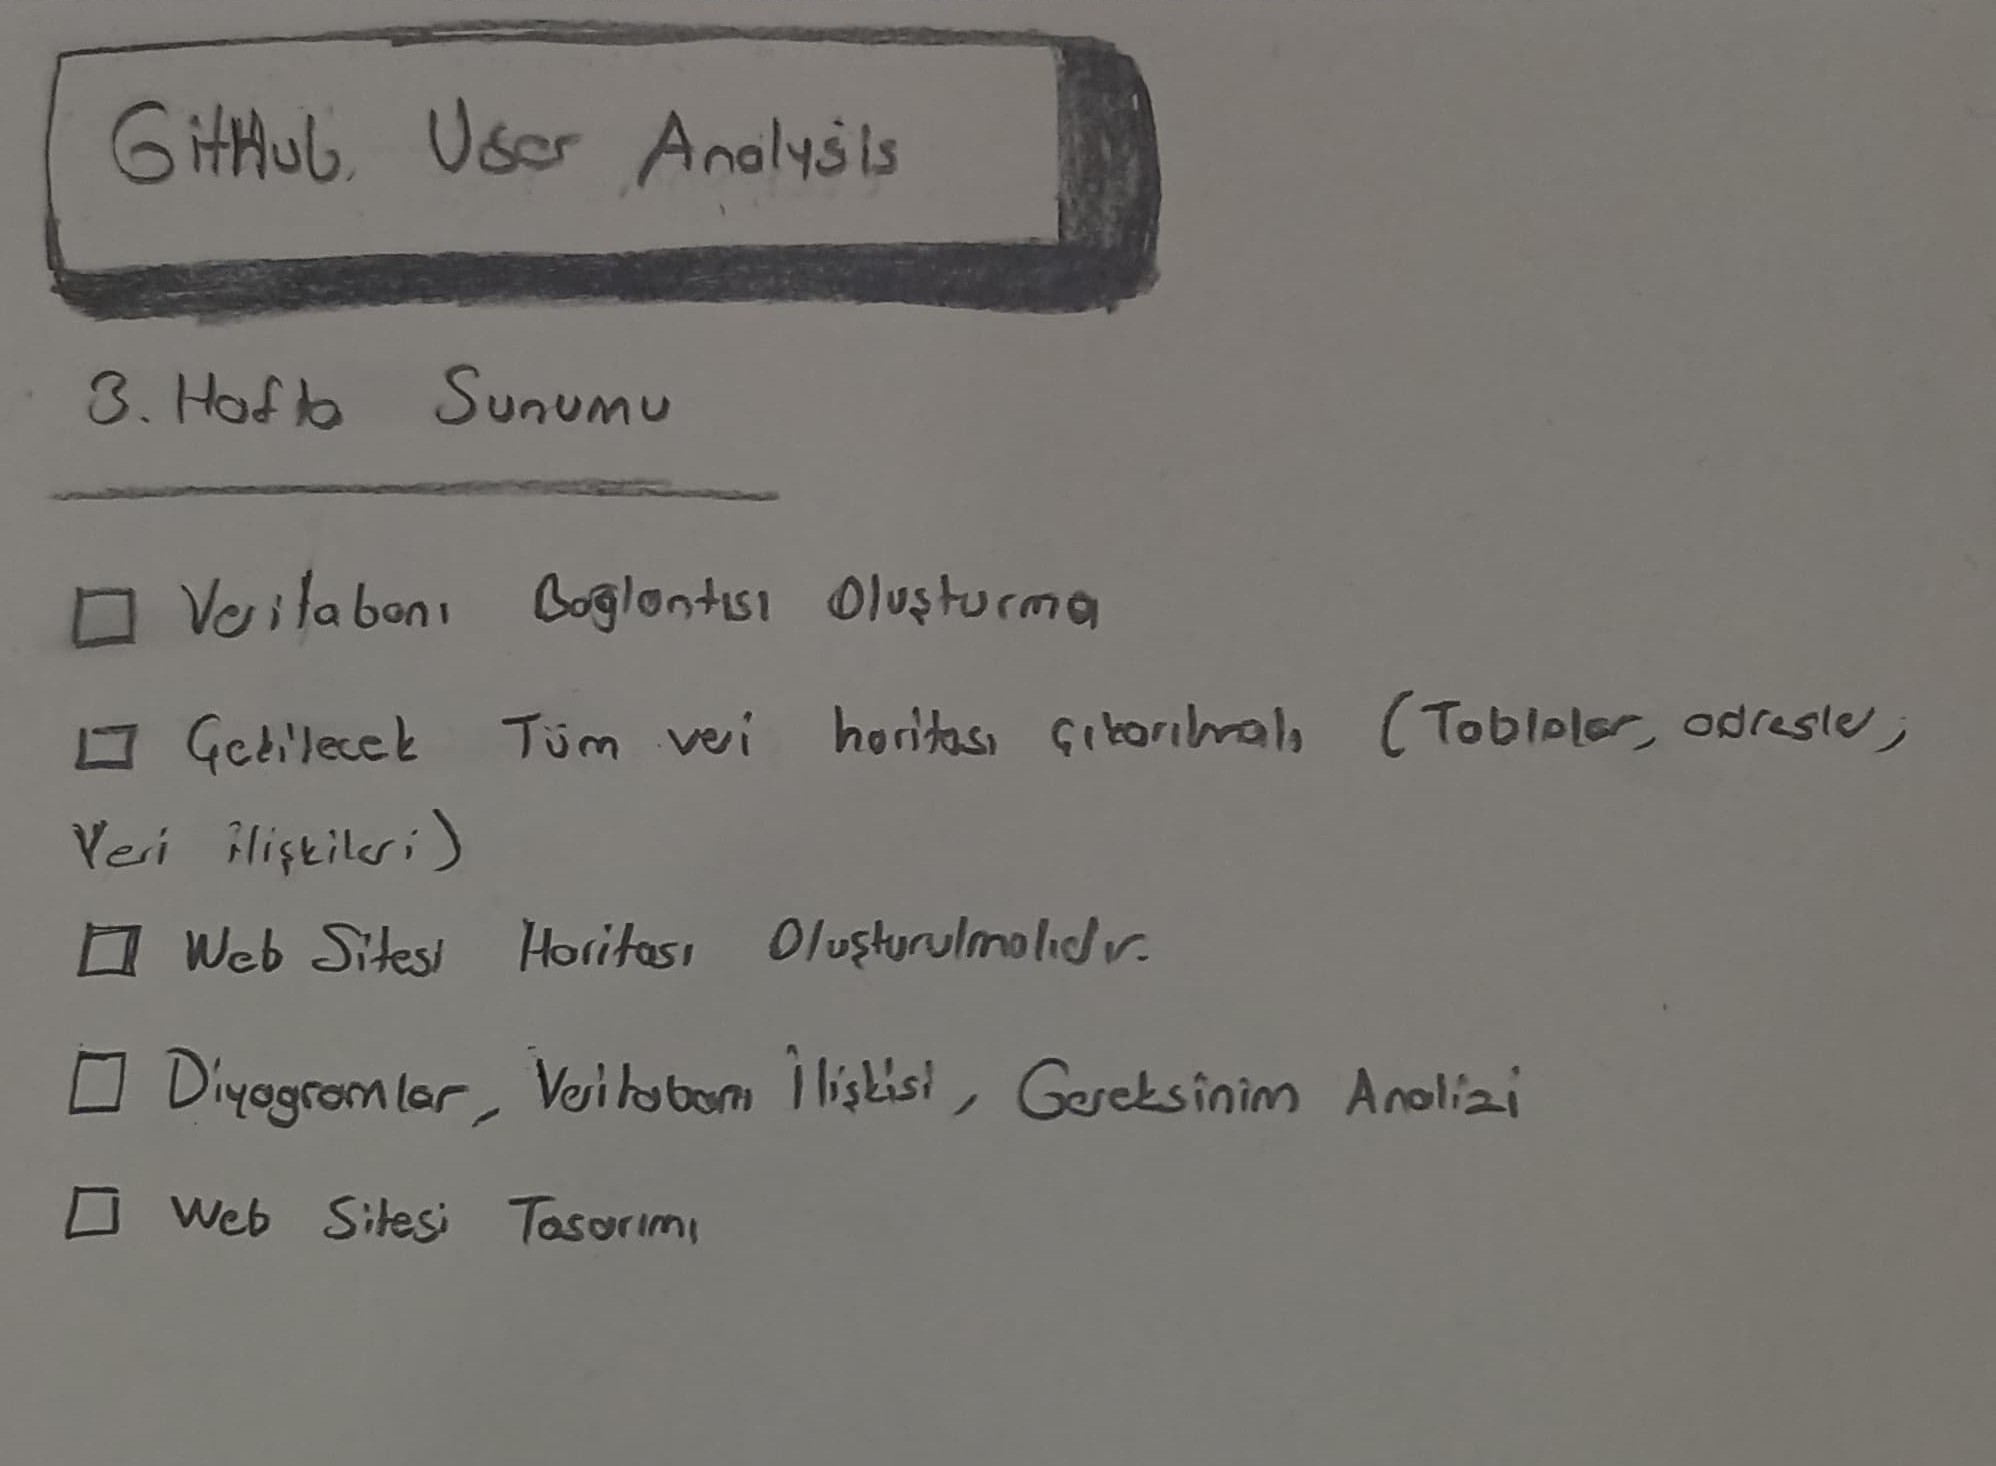 GitHub User Analysis
3. Hafta Sunumu
Veritabanı Bağlantısı Oluşturma
Çekilecek Tüm veri haritası çıkarılmalı (Tablolar, adresler,
Veri ilişkileri)
Web Sitesi Haritası Oluşturulmalıdır.
Diyagramlar, Veritabanı İlişkisi, Gereksinim Analizi
Web Sitesi Tasarımı